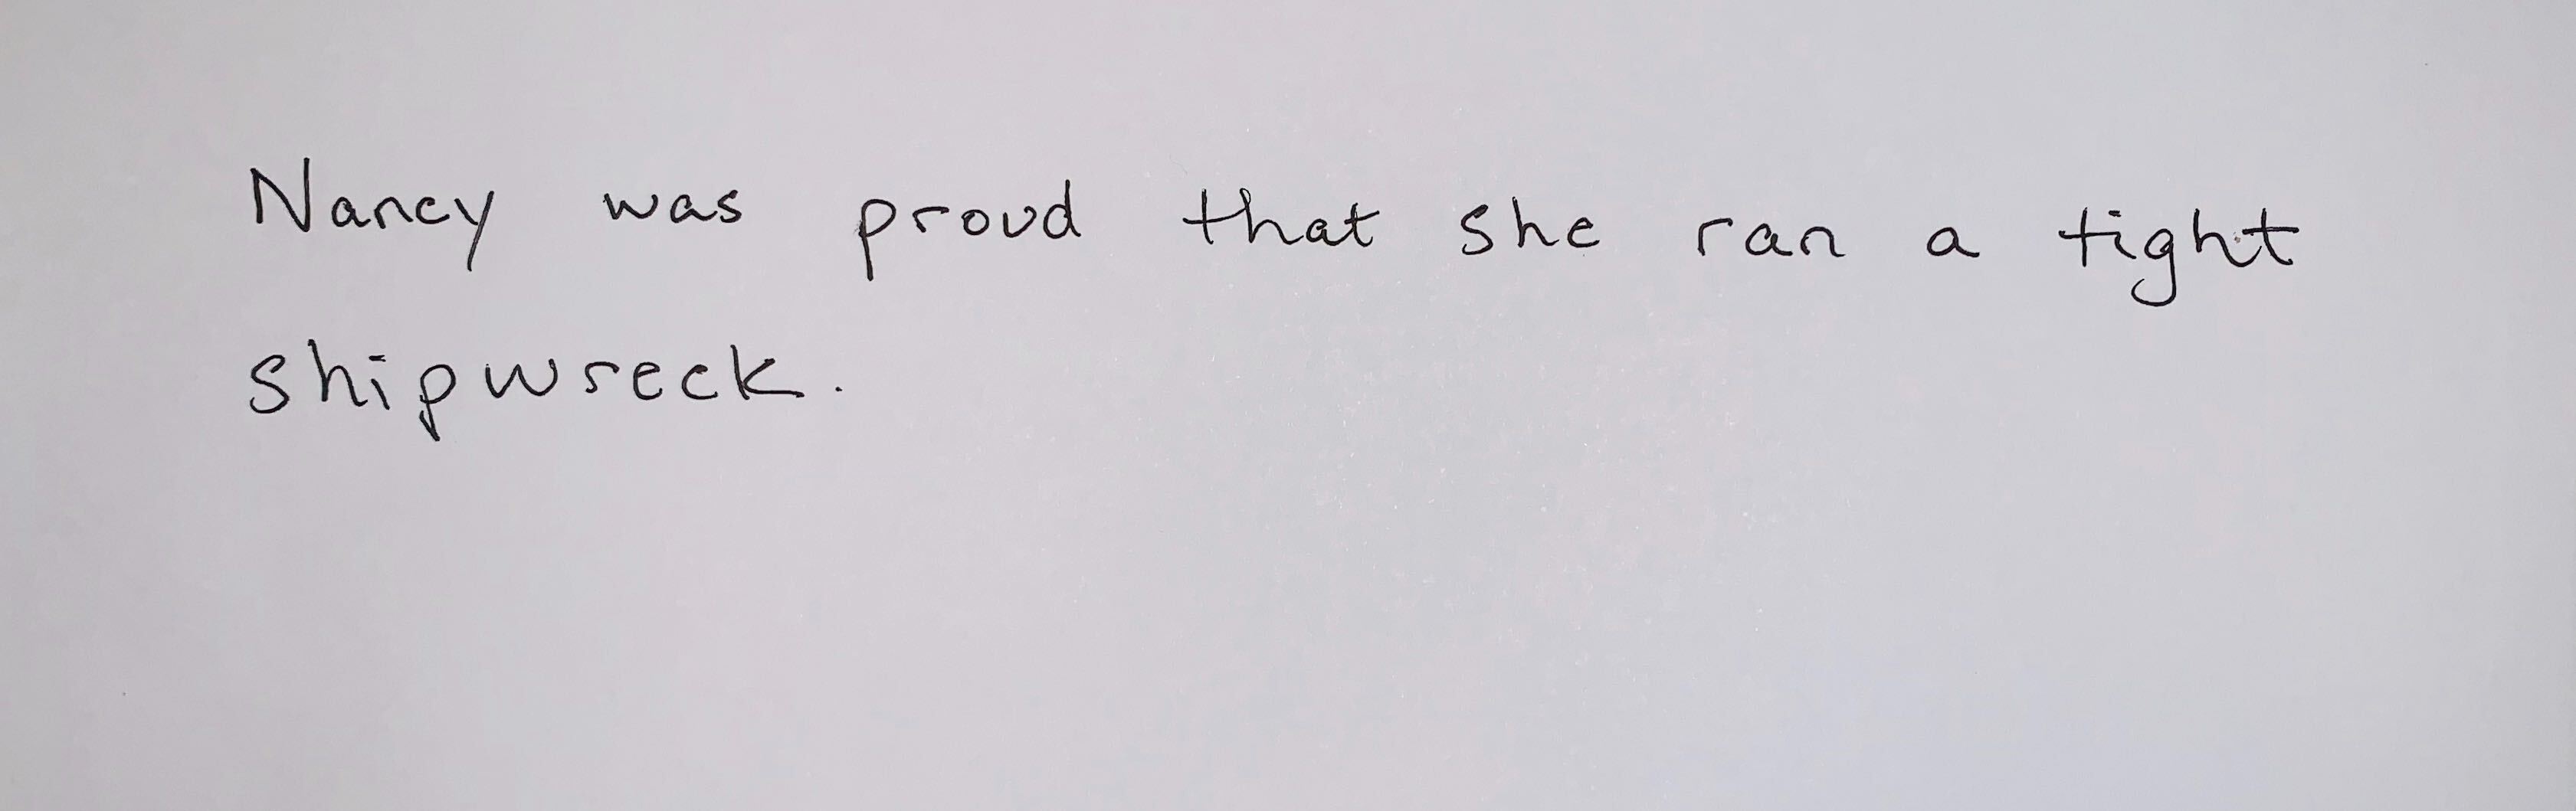 Nancy was proud that she ran a tight
shipwreck.